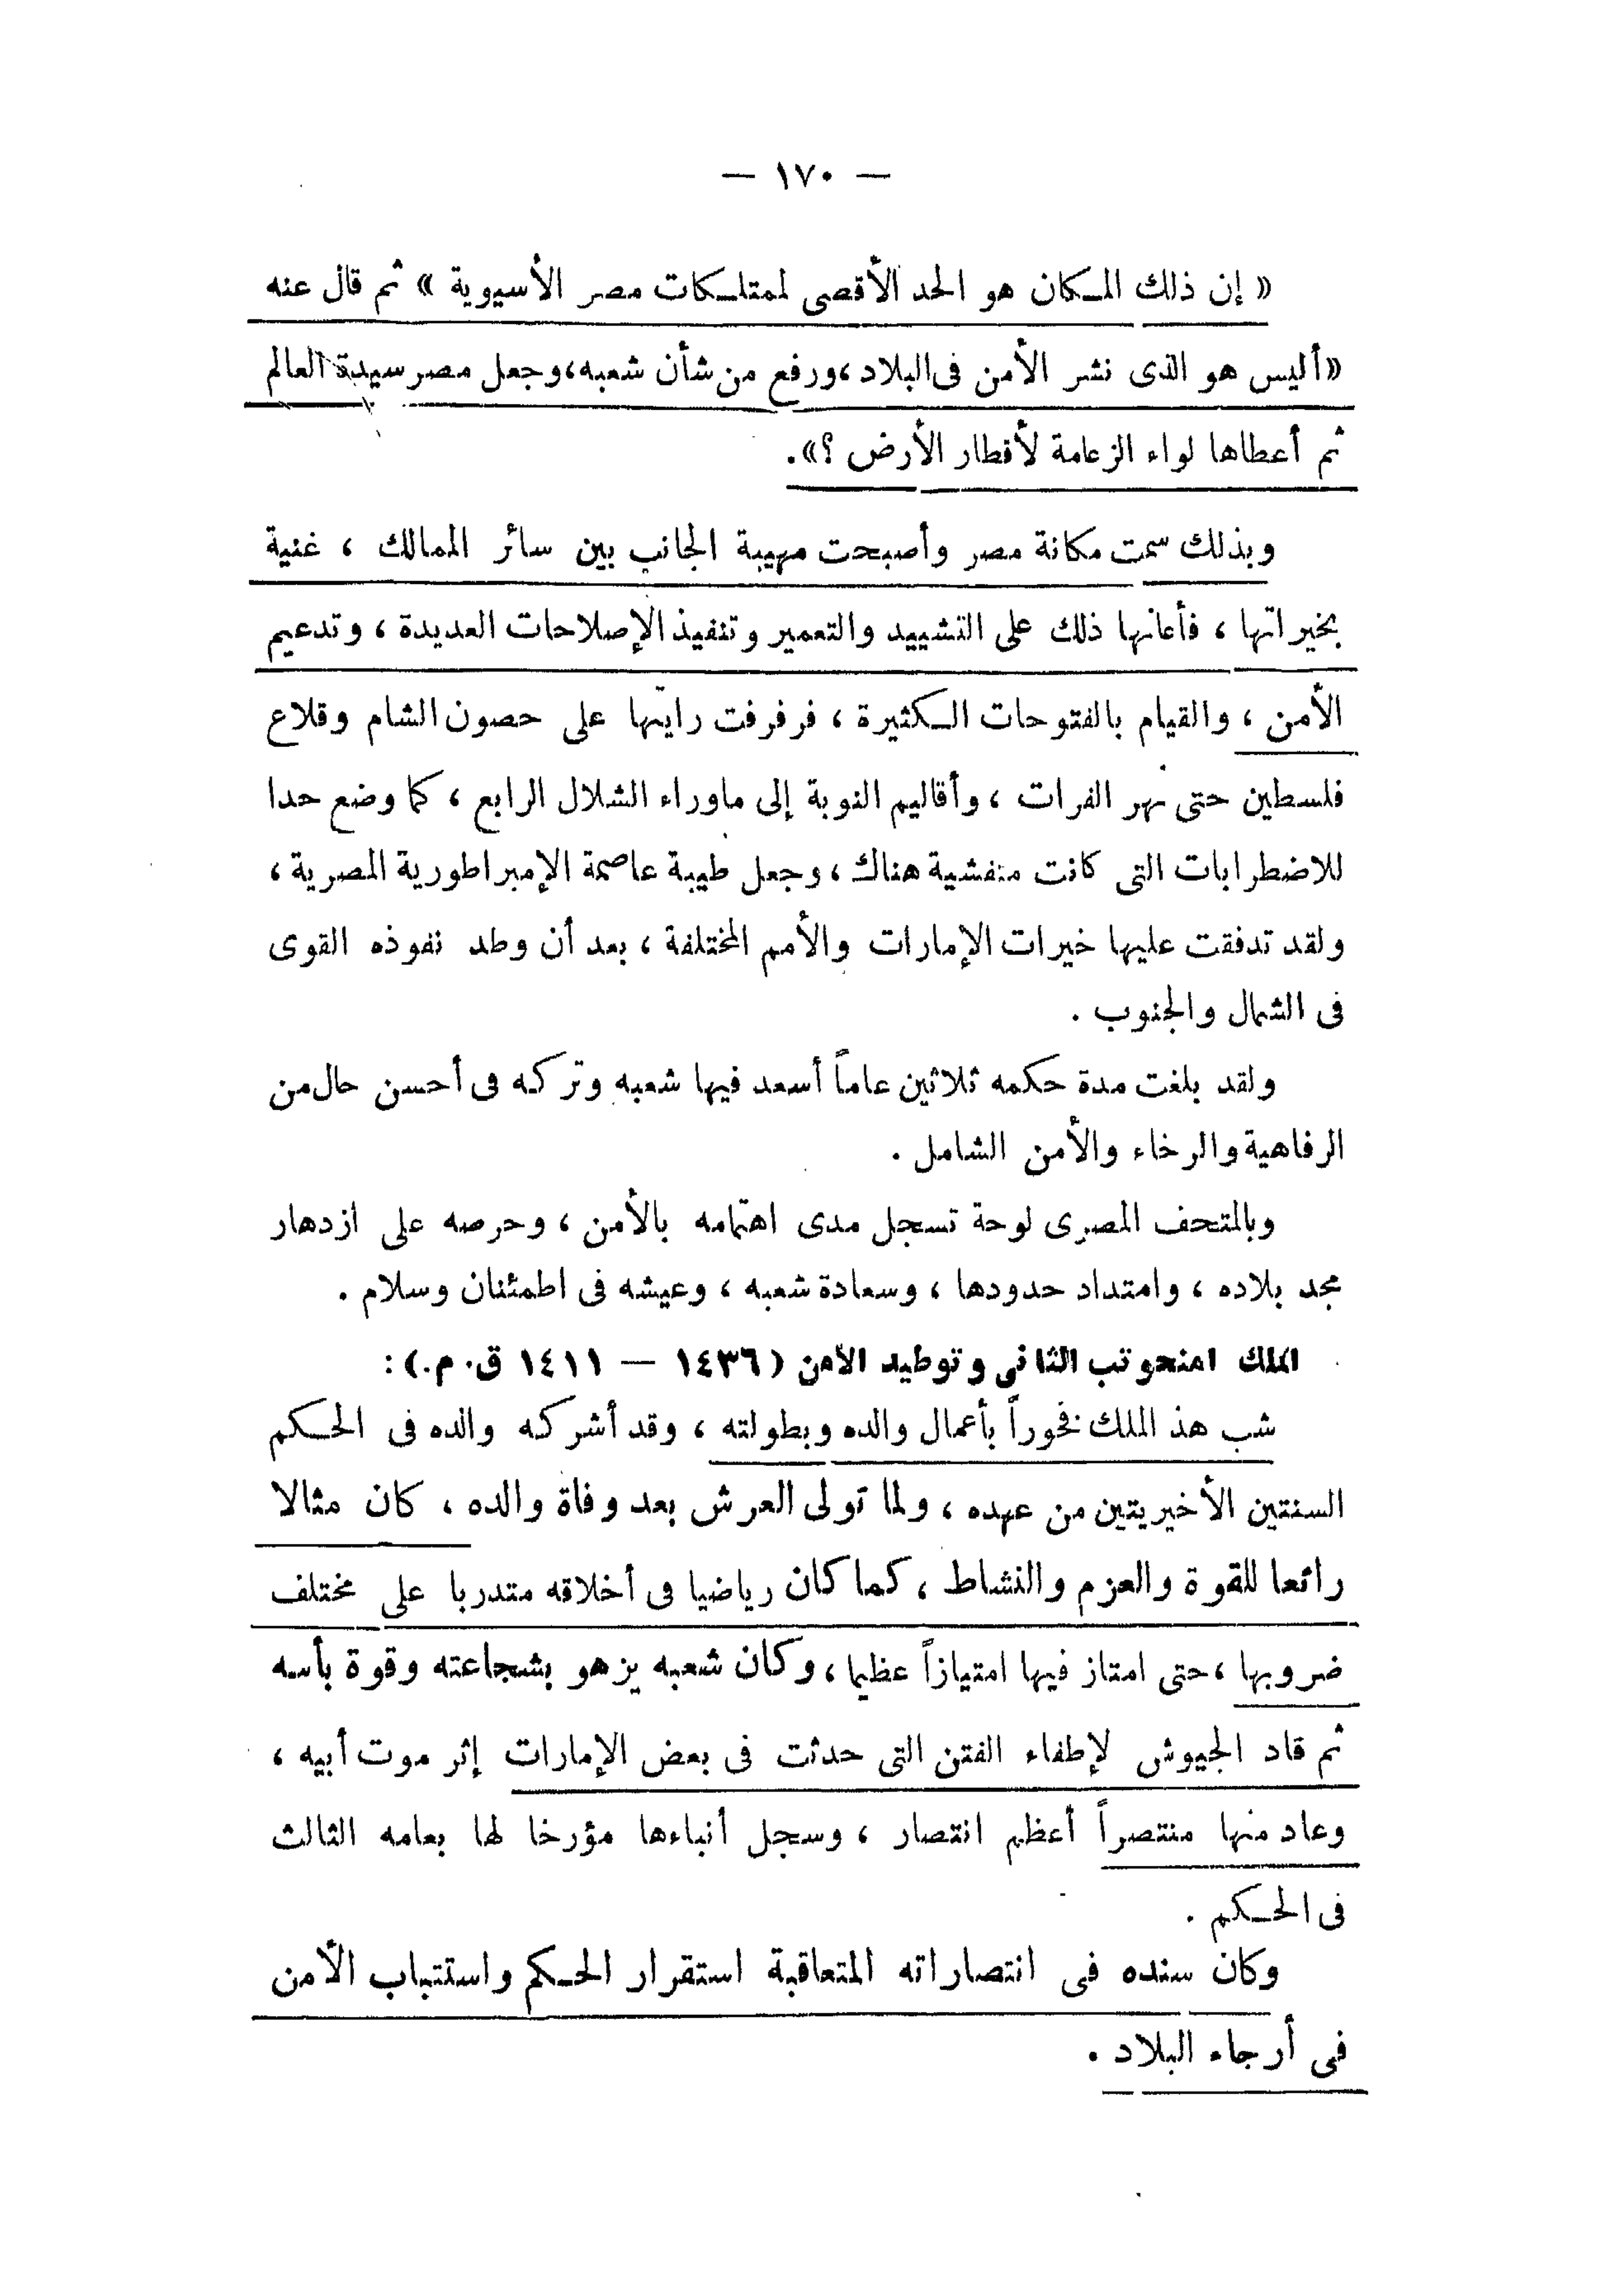 — ١٧٠ —
« إن ذلك المكان هو الحد الأقصى لممتلكات مصر الأسيوية » ثم قال عنه
«أليس هو الذى نشر الأمن فى البلاد ،ورفع من شأن شعبه،وجعل مصر سيدة العالم
ثم أعطاها لواء الزعامة لأقطار الأرض ؟».
وبذلك سمت مكانة مصر وأصبحت مهيبة الجانب بين سائر الممالك ، غنية
بخيراتها ، فأعانها ذلك على التشييد والتعمير وتنفيذ الإصلاحات العديدة ، وتدعيم
الأمن ، والقيام بالفتوحات الكثيرة ، فرفرفت رايتها على حصون الشام وقلاع
فلسطين حتى نهر الفرات ، وأقاليم النوبة إلى ماوراء الشلال الرابع ، كما وضع حدا
للاضطرابات التى كانت متفشية هناك ، وجعل طيبة عاصمة الإمبراطورية المصرية ،
ولقد تدفقت عليها خيرات الإمارات والأمم المختلفة ، بعد أن وطد نفوذه القوى
فى الشمال والجنوب .
ولقد بلغت مدة حكمه ثلاثين عاماً أسعد فيها شعبه وتركه فى أحسن حال من
الرفاهية والرخاء والأمن الشامل .
وبالمتحف المصرى لوحة تسجل مدى اهتمامه بالأمن ، وحرصه على ازدهار
مجد بلاده ، وامتداد حدودها ، وسعادة شعبه ، وعيشه فى اطمئنان وسلام .
الملك امنحوتب الثانى وتوطيد الأمن (١٤٣٦ — ١٤١١ ق. م.) :
شب هذ الملك فخوراً بأعمال والده وبطولته ، وقد أشركه والده فى الحكم
السنتين الأخيريتين من عهده ، ولما تولى العرش بعد وفاة والده ، كان مثالا
رائعا للقوة والعزم والنشاط ، كما كان رياضيا فى أخلاقه متدربا على مختلف
ضروبها ،حتى امتاز فيها امتيازاً عظيما ، وكان شعبه يزهو بشجاعته وقوة بأسه
ثم قاد الجيوش لإطفاء الفتن التى حدثت فى بعض الإمارات إثر موت أبيه ،
وعاد منها منتصراً أعظم انتصار ، وسجل أنباءها مؤرخا لها بعامه الثالث
فى الحكم .
وكان سنده فى انتصاراته المتعاقبة استقرار الحكم واستتباب الأمن
فى أرجاء البلاد .